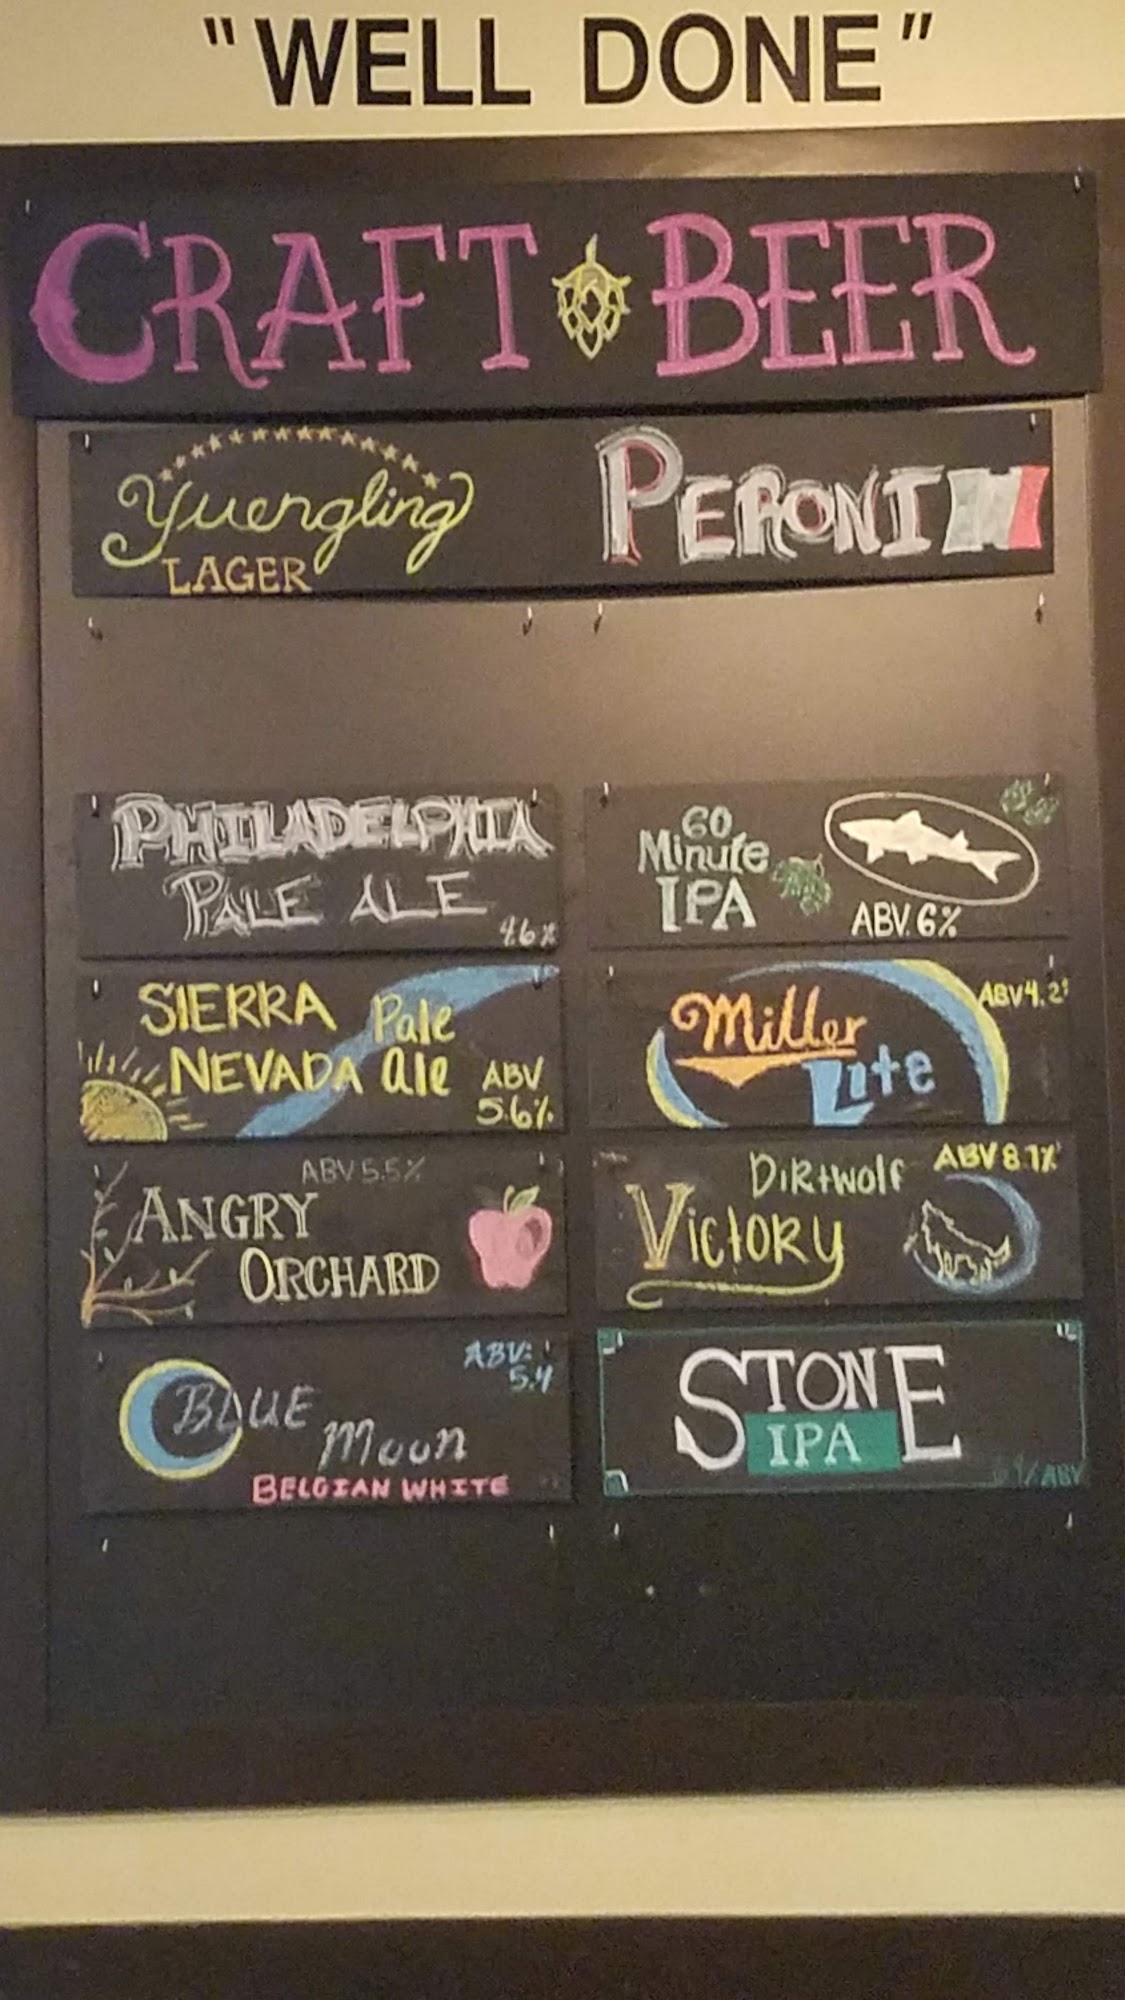 "WELL DONE"
CRAFT BEER
Yuengling
LAGER
PERONI
PHILADELPHIA
PALE ALE
4.6%
60
Minute
IPA
ABV. 6%
SIERRA Pale
NEVADA ale
ABV
5.6%
Miller
Lite
ABV 4.2
ABV 5.5%
ANGRY
ORCHARD
DiRtwolf
ABV 8.7%
VictORY
BLUE
Moon
BELGIAN WHITE
ABV:
5.4
STONE
IPA
ABV